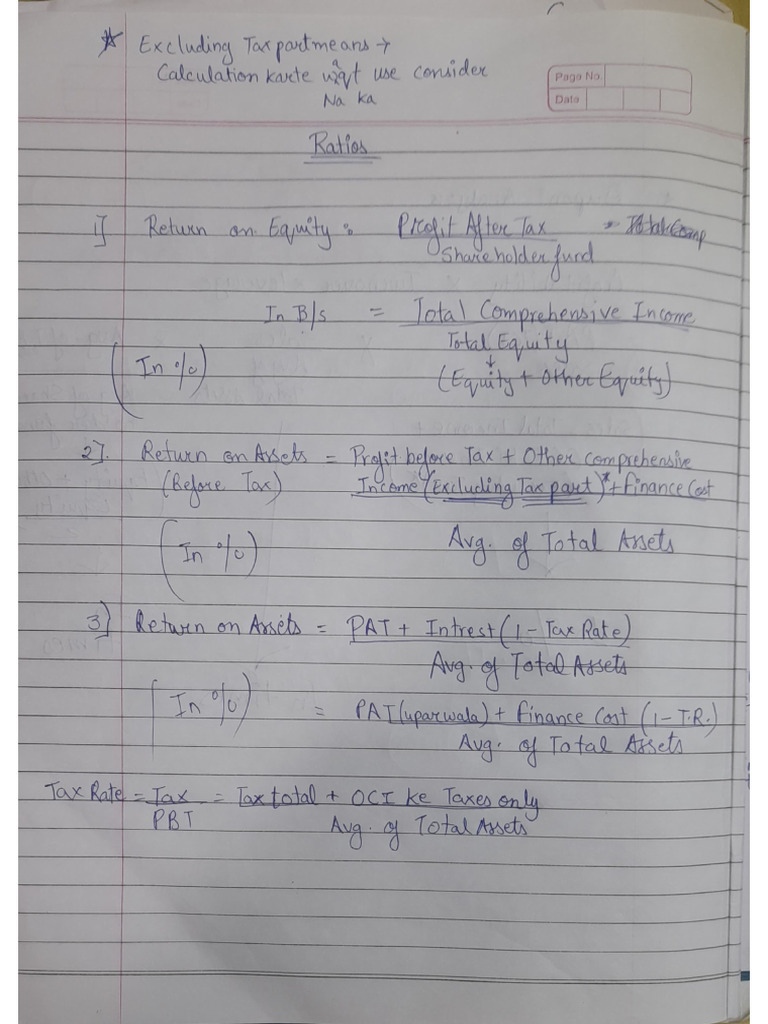 Excluding Tax part means →
Calculation karte वक़्त use consider
Na ka
Page No.
Date
Ratios
1] Return on Equity : Profit After Tax
Shareholder fund
In B/s = Total Comprehensive Income
Total Equity
↓
(In %) (Equity + Other Equity)
2]. Return on Assets = Profit before Tax + Other comprehensive
(Before Tax) Income (Excluding Tax part)* + Finance Cost
(In %) Avg. of Total Assets
3] Return on Assets = PAT + Intrest (1 - Tax Rate)
Avg. of Total Assets
[In %) = PAT (uparwala) + finance Cost (1 - T.R.)
Avg. of Total Assets
Tax Rate = Tax = Tax total + OCI ke Taxes only
PBT Avg. of Total Assets